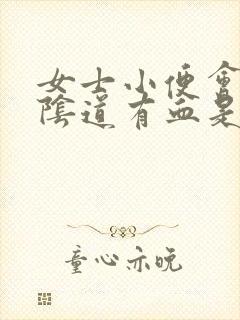 女士小便會
陰道有血是
童心亦晚